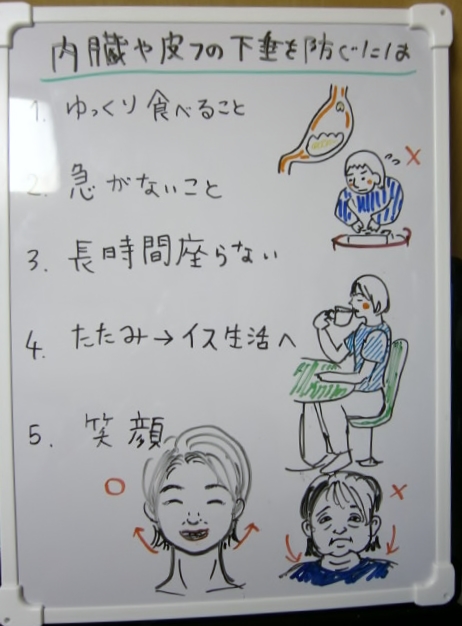 内臓や皮フの下垂を防ぐには
1. ゆっくり食べること
2. 急がないこと
3. 長時間座らない
4. たたみ→イス生活へ
5. 笑顔